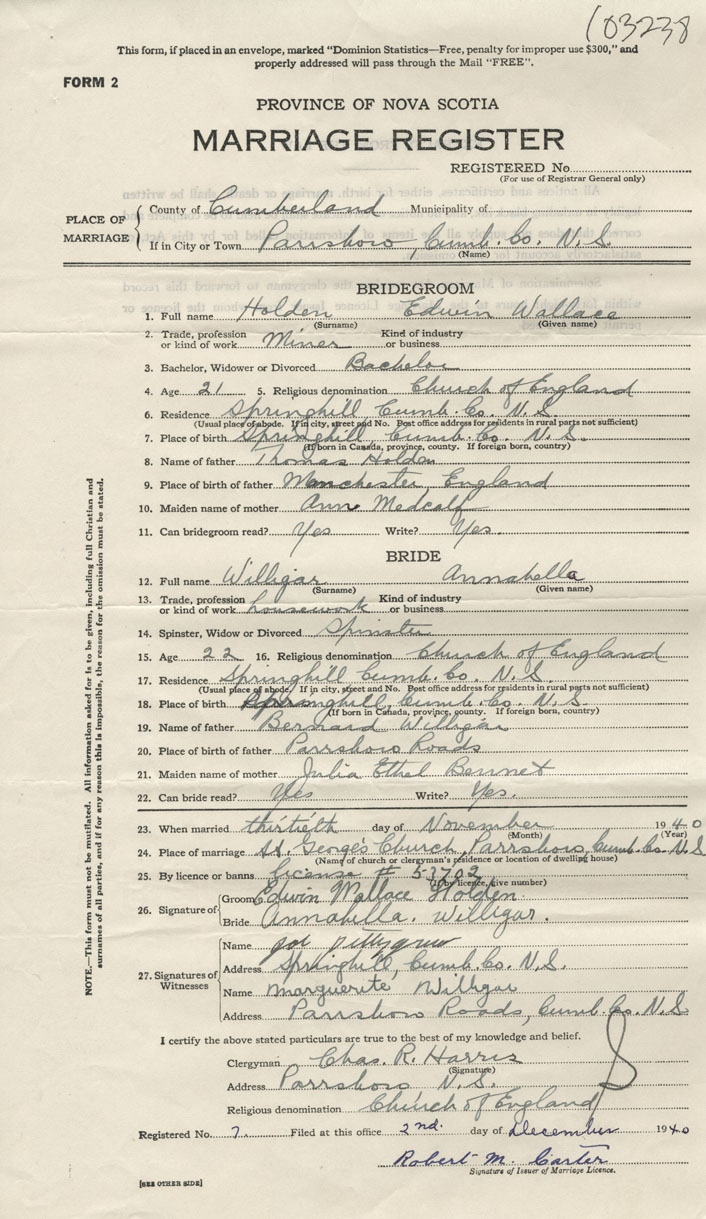 103238
This form, if placed in an envelope, marked "Dominion Statistics—Free, penalty for improper use $300," and
properly addressed will pass through the Mail "FREE".
FORM 2
PROVINCE OF NOVA SCOTIA
MARRIAGE REGISTER
REGISTERED No.
(For use of Registrar General only)
PLACE OF MARRIAGE
County of Cumberland Municipality of
If in City or Town Parrsboro, Cumb. Co. N.S.
(Name)
BRIDEGROOM
1. Full name Holden Edwin Wallace
(Surname) (Given name)
2. Trade, profession or kind of work Miner Kind of industry or business
3. Bachelor, Widower or Divorced Bachelor
4. Age 21 5. Religious denomination Church of England
6. Residence Springhill, Cumb. Co. N.S.
(Usual place of abode. If in city, street and No. Post office address for residents in rural parts not sufficient)
7. Place of birth Springhill, Cumb. Co. N.S.
(If born in Canada, province, county. If foreign born, country)
8. Name of father Thomas Holden
9. Place of birth of father Manchester, England
10. Maiden name of mother Ann Medcalf
11. Can bridegroom read? Yes Write? Yes.
BRIDE
12. Full name Willigar Annabella
(Surname) (Given name)
13. Trade, profession or kind of work housework Kind of industry or business
14. Spinster, Widow or Divorced Spinster
15. Age 22 16. Religious denomination Church of England
17. Residence Springhill Cumb. Co. N.S.
(Usual place of abode. If in city, street and No. Post office address for residents in rural parts not sufficient)
18. Place of birth Springhill, Cumb. Co. N.S.
(If born in Canada, province, county. If foreign born, country)
19. Name of father Bernard Willigar
20. Place of birth of father Parrsboro Roads
21. Maiden name of mother Julia Ethel Bennet
22. Can bride read? Yes Write? Yes.
23. When married thirtieth day of November 1940
(Month) (Year)
24. Place of marriage St. George's Church, Parrsboro, Cumb. Co. N.S
(Name of church or clergyman's residence or location of dwelling house)
25. By licence or banns license # 53702
(If by licence, give number)
26. Signature of
Groom Edwin Wallace Holden
Bride Annabella. Willigar.
27. Signatures of Witnesses
Name Joe Pettigrew
Address Springhill, Cumb. Co. N.S.
Name Marguerite Willigar
Address Parrsboro Roads, Cumb. Co. N.S
I certify the above stated particulars are true to the best of my knowledge and belief.
Clergyman Chas. R. Harris
(Signature)
Address Parrsboro N.S.
Religious denomination Church of England
Registered No. 7. Filed at this office 2nd. day of December 1940
Robert M. Carter
Signature of Issuer of Marriage Licence.
[SEE OTHER SIDE]
NOTE.—This form must not be mutilated. All information asked for is to be given, including full Christian and
surnames of all parties, and if for any reason this is impossible, the reason for the omission must be stated.